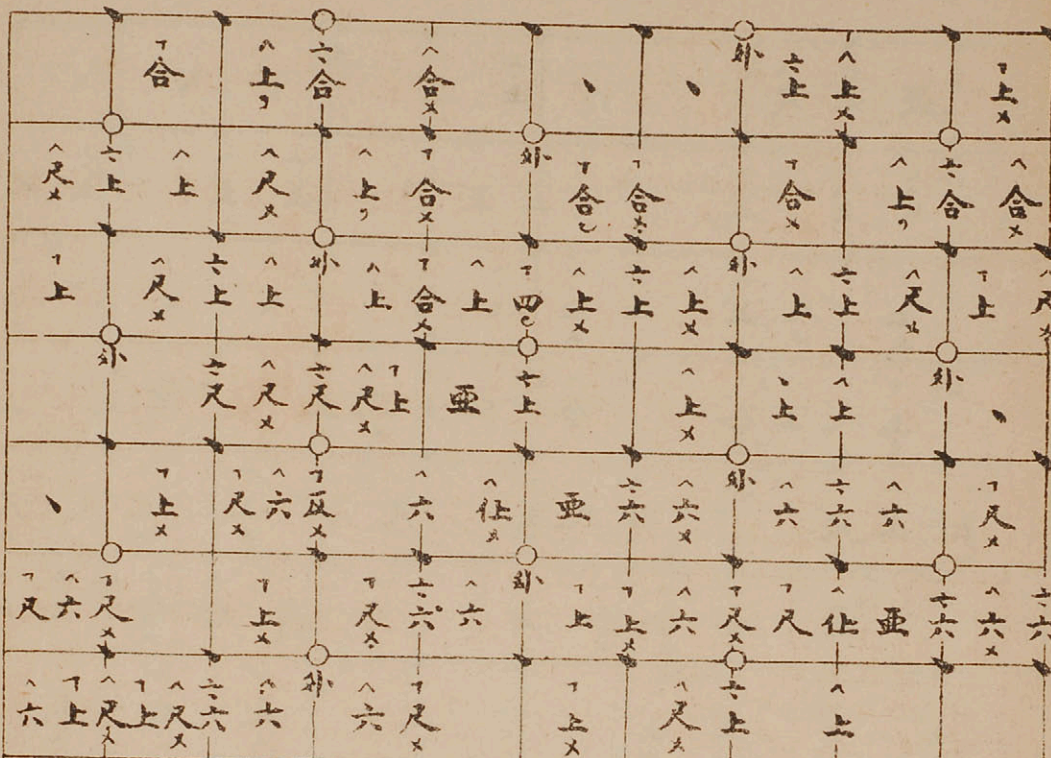 合 上 合 合 、 、 外 上 上 上
尺 上 上 尺 上 合 外 合 合 合 上 合 合
上 尺 上 上 外 上 合 上 四 上 上 上 外 上 上 尺 上 尺
外 尺 尺 尺 尺 上 亜 上 上 上 上 外 、
、 上 尺 六 反 六 仩 亜 六 六 外 六 六 六 尺
尺 六 尺 上 尺 六 六 外 上 上 六 尺 尺 仩 亜 六 六 六
六 上 尺 上 尺 六 六 外 六 尺 上 尺 上 上